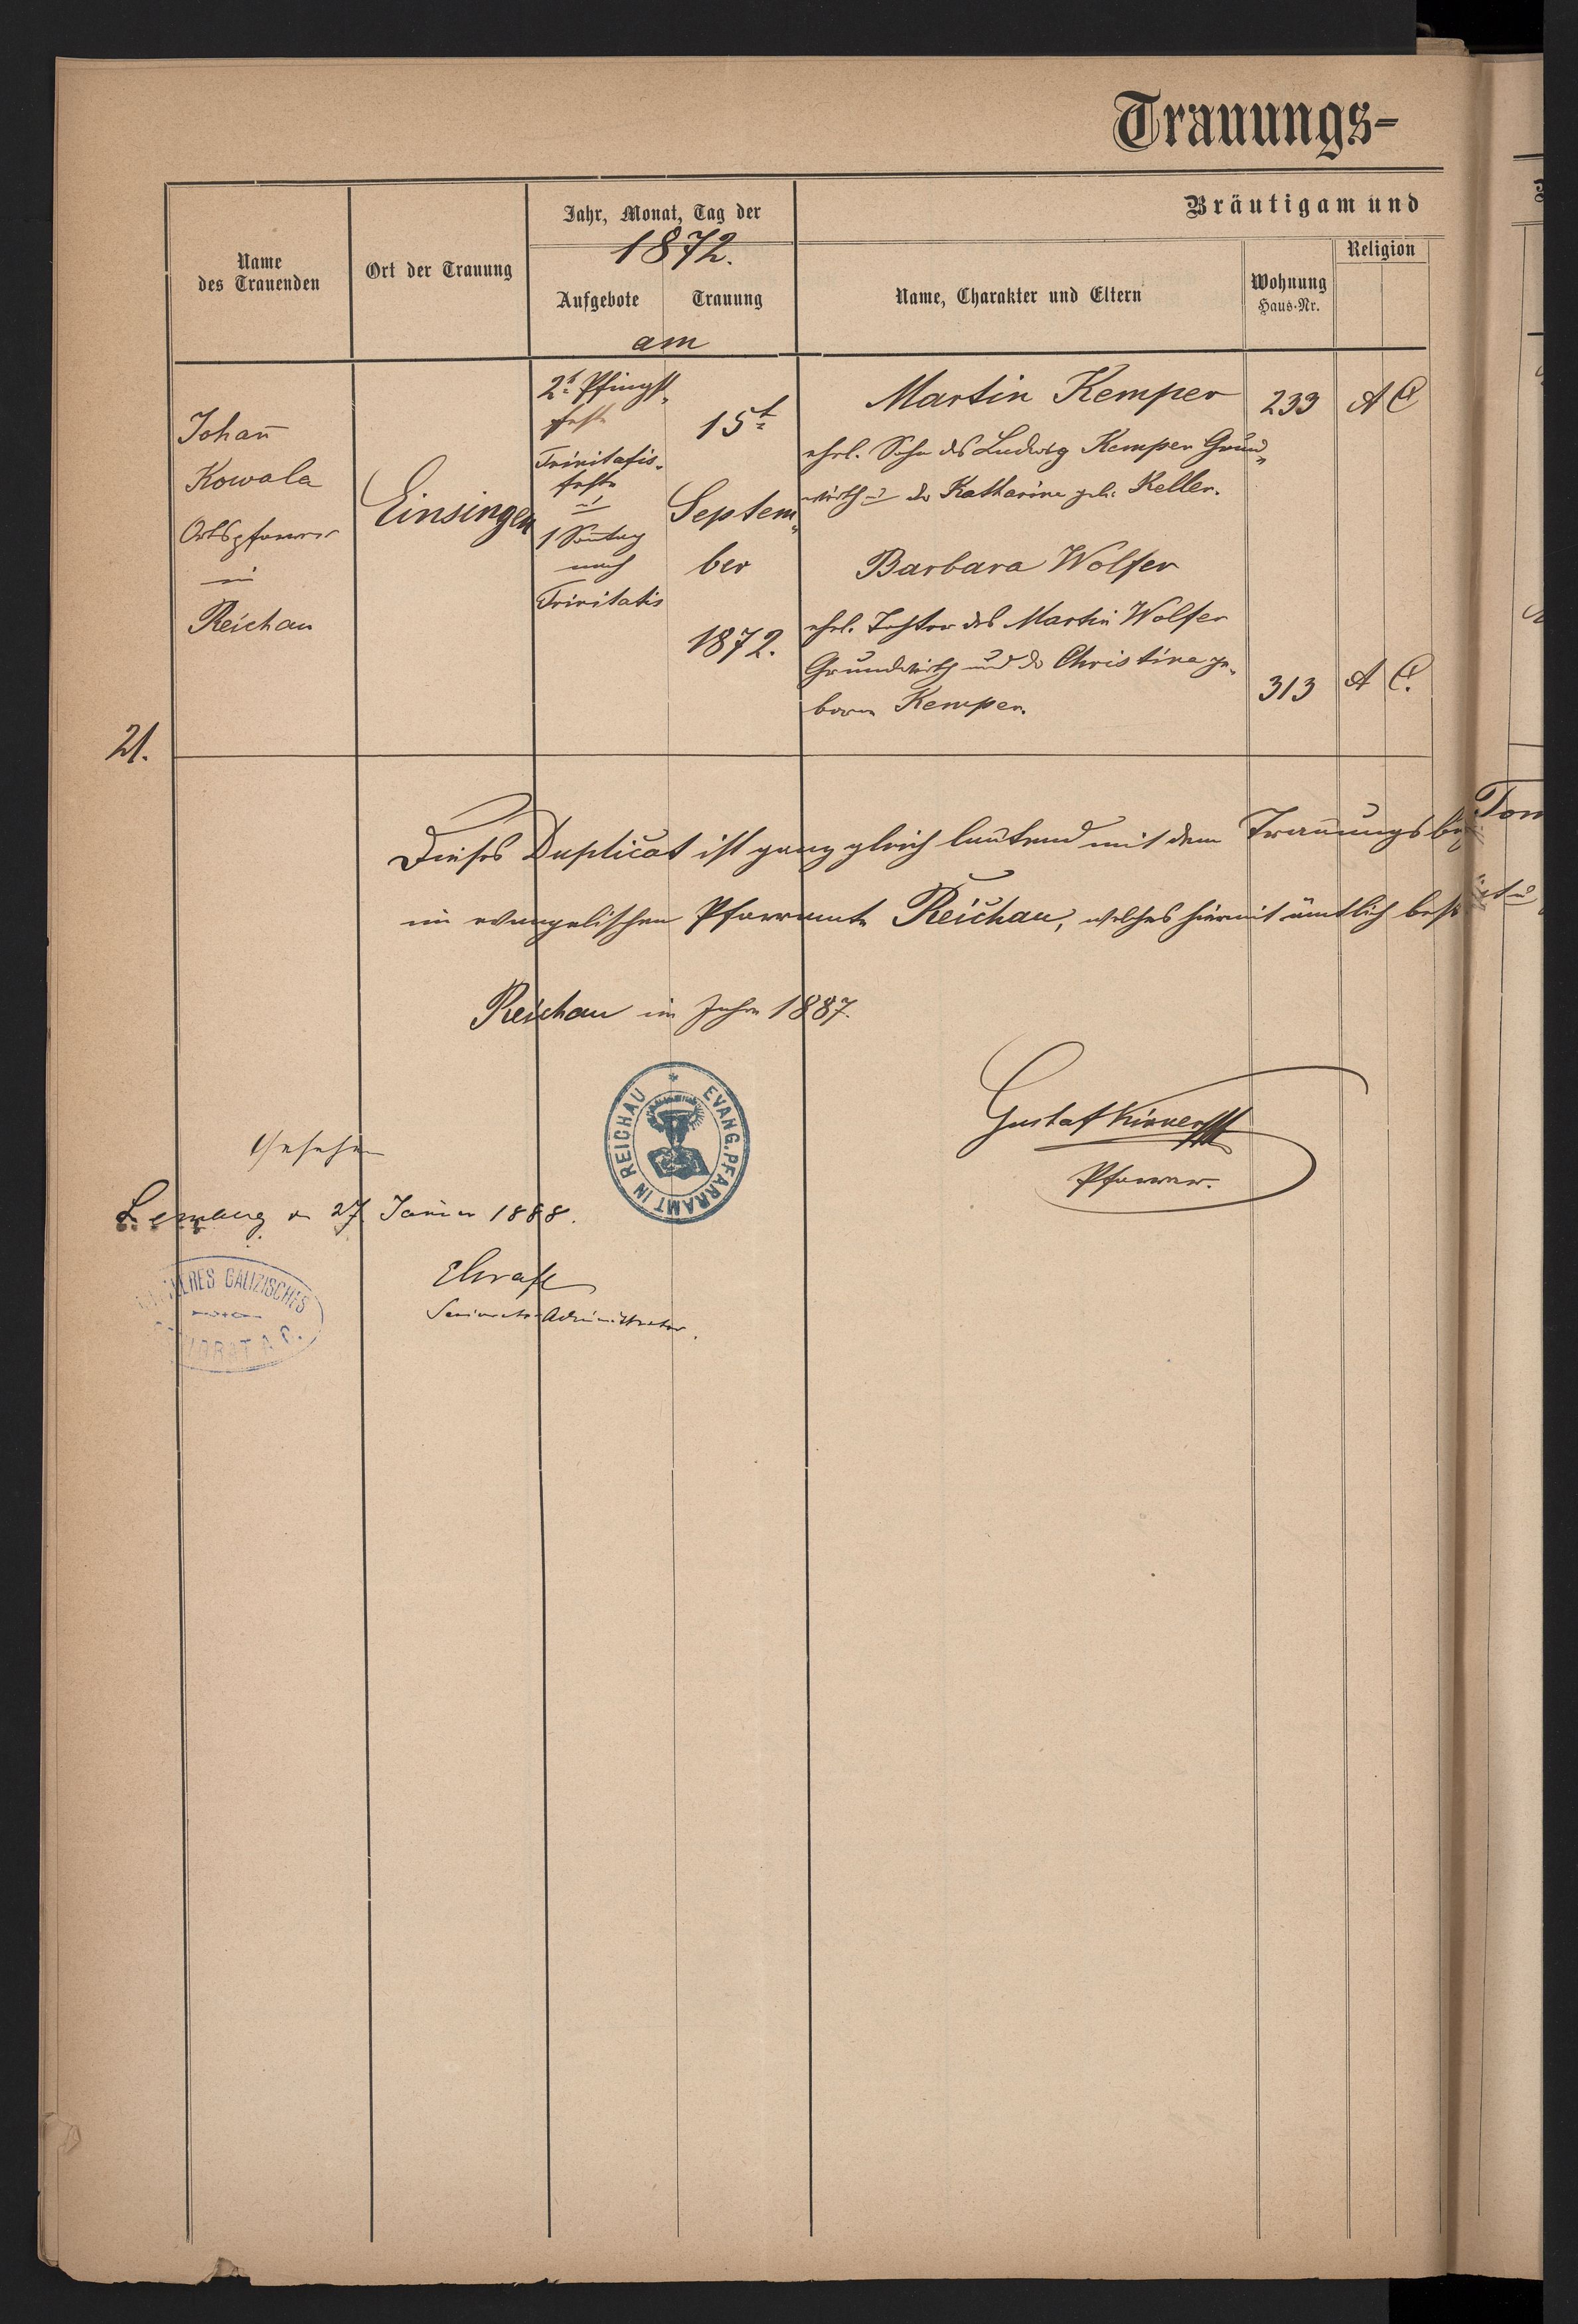 Trauungs-
Bräutigam und
Jahr, Monat, Tag der
1872.
Name
des Trauenden
Ort der Trauung
Aufgebote
Trauung
am
Name, Charakter und Eltern
Wohnung
Haus-Nr.
Religion
Johan̄
Kowala
Ortspfarrer
in
Reichau
Einsingen
2t Pfingst„
feste
Trinitatis-
feste
u
1 Son̄tag
nach
Trinitatis
15t
Septem„
ber
1872.
Martin Kemper
ehel. Sohn des Ludwig Kemper Grund„
wirth u der Katharina geb. Keller.
233 A C
Barbara Wolfer
ehel. Tochter des Martin Wolfer
Grundwirth und der Christina ge„
boren Kemper.
313 A C.
21.
Dieses Duplicat ist ganz gleich lautend mit dem Trauungsb
im evangelischen Pfarramte Reichau, welches hiermit ämtlich bes
Reichau im Jahre 1887.
EVANG. PFARRAMT IN REICHAU
Gustaf
Pfarrer.
Gesehen
Lemberg 27 Januar 1888.
GALIZISCHES
Seniorats-Administrator.